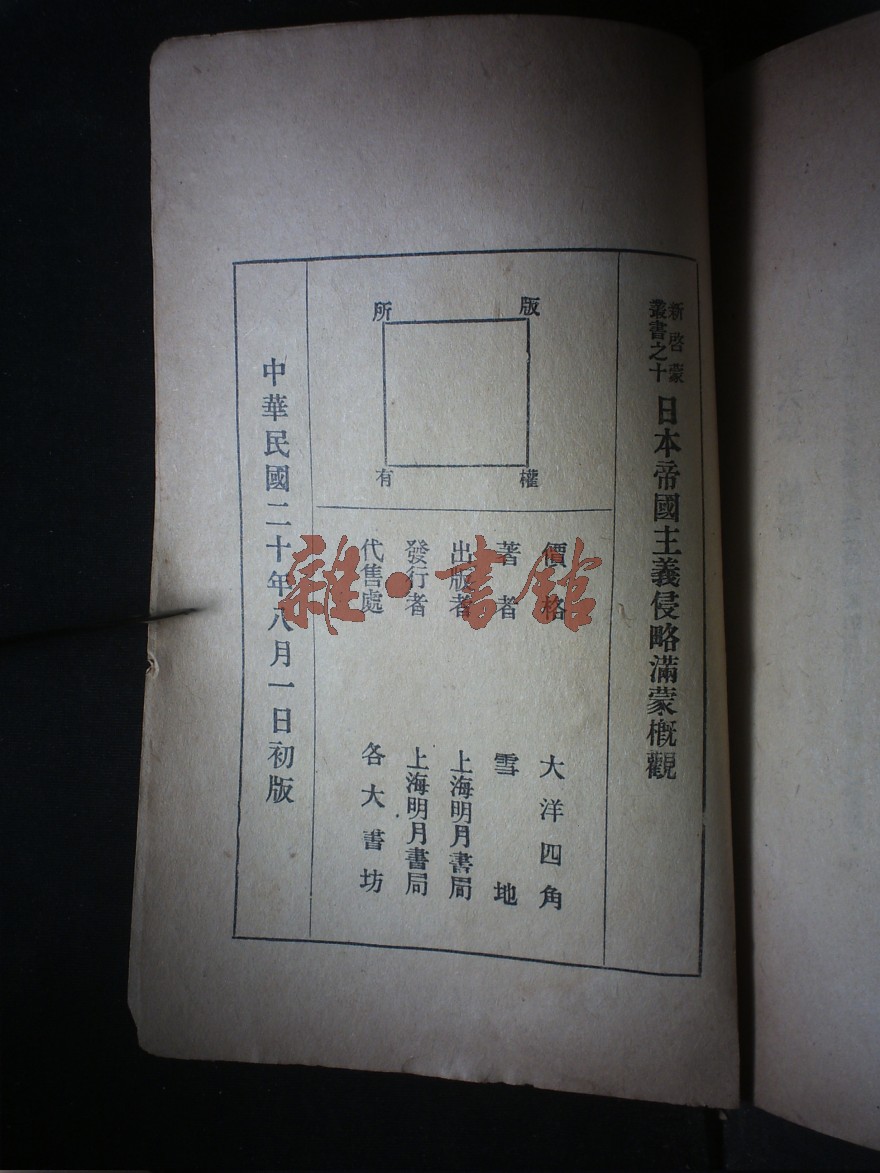 新啓蒙
叢書之十
日本帝國主義侵略滿蒙概觀
版權所有
價格 大洋四角
著者 雪地
出版者 上海明月書局
發行者 上海明月書局
代售處 各大書坊
中華民國二十年八月一日初版
雜·書館